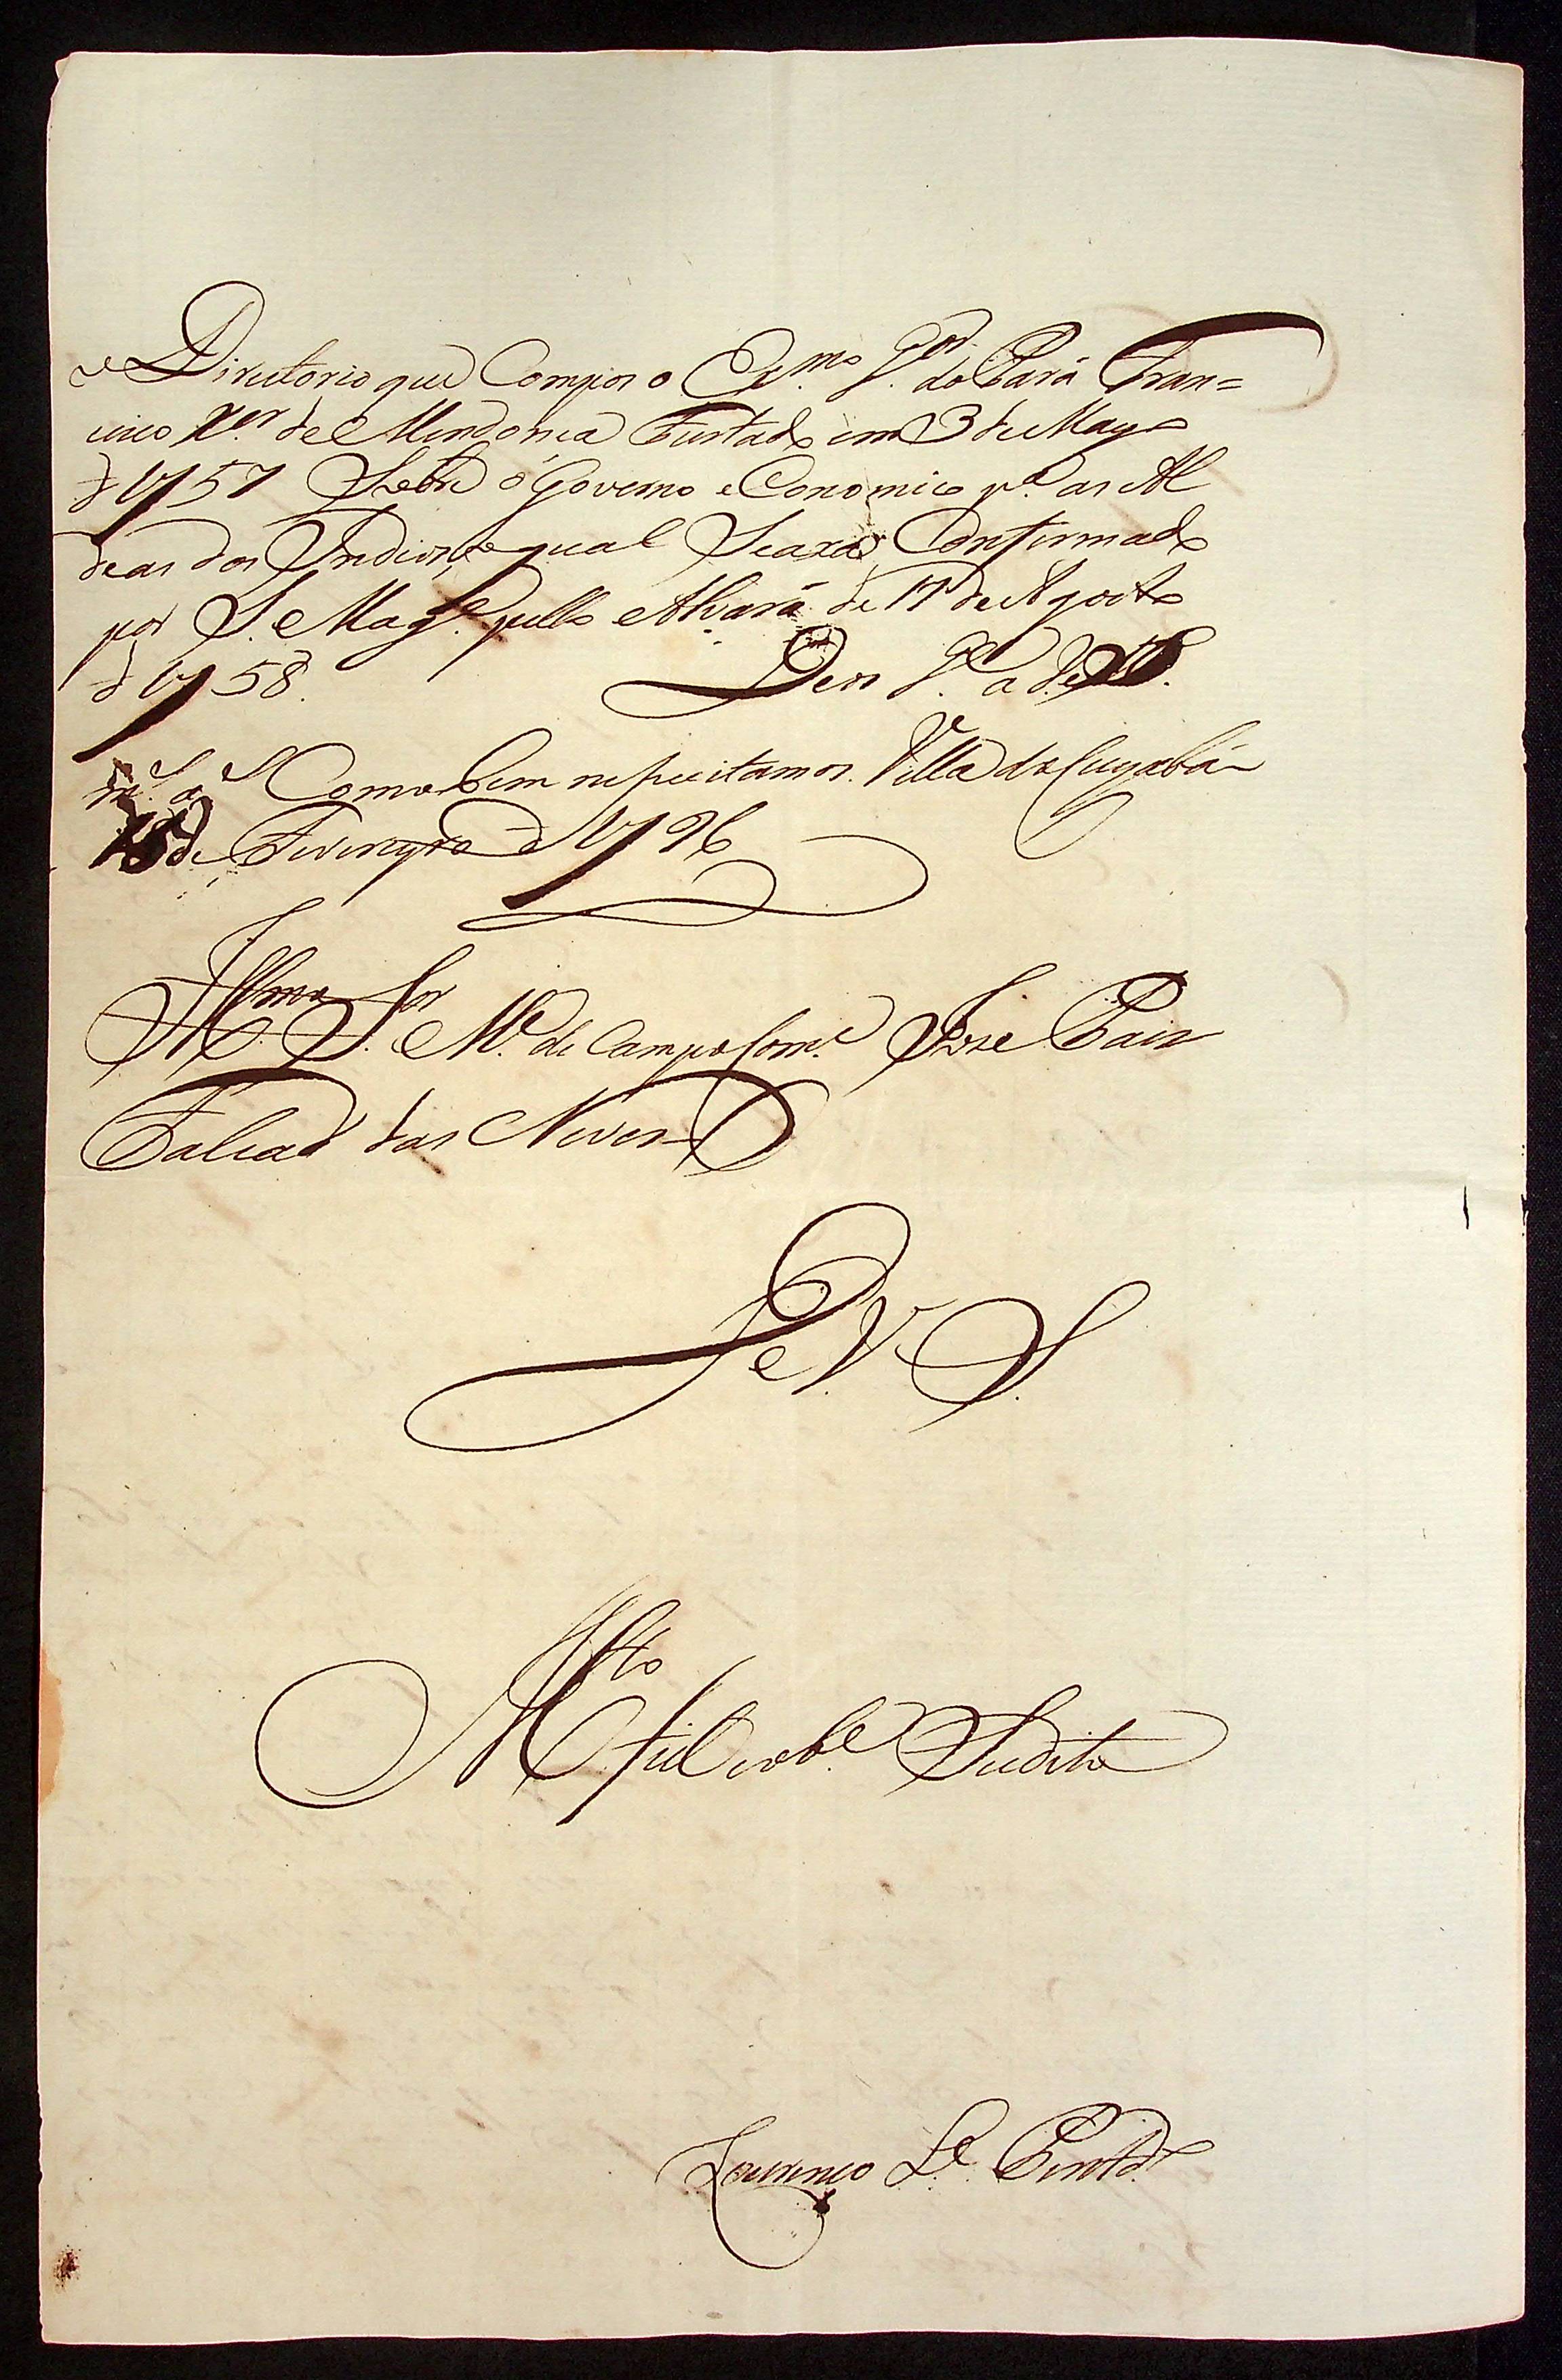 o Directorio que Compos o Ex.mo G.or do Pará Fran=
cisco X.er de Mendonca Furtado em 3 de Mayo
d 1757 Sobre o Governo eConomico p.a as Al
deas dos Indios, o qual Seaxa Confirmado
por S. Mag.e pello Alvará de 17 de Agosto
d 1758. Deos G.e a V. S.
m.s a.s Como bem nesecitamos. Villa do Cuyabá
18 de Fevereyro d 1796
Illmo Sor
M.e de Campo Com.e Jose Paes
Falcaõ das Neves
De V. S.
M.to fiel eob.e Sudito
Lourenço